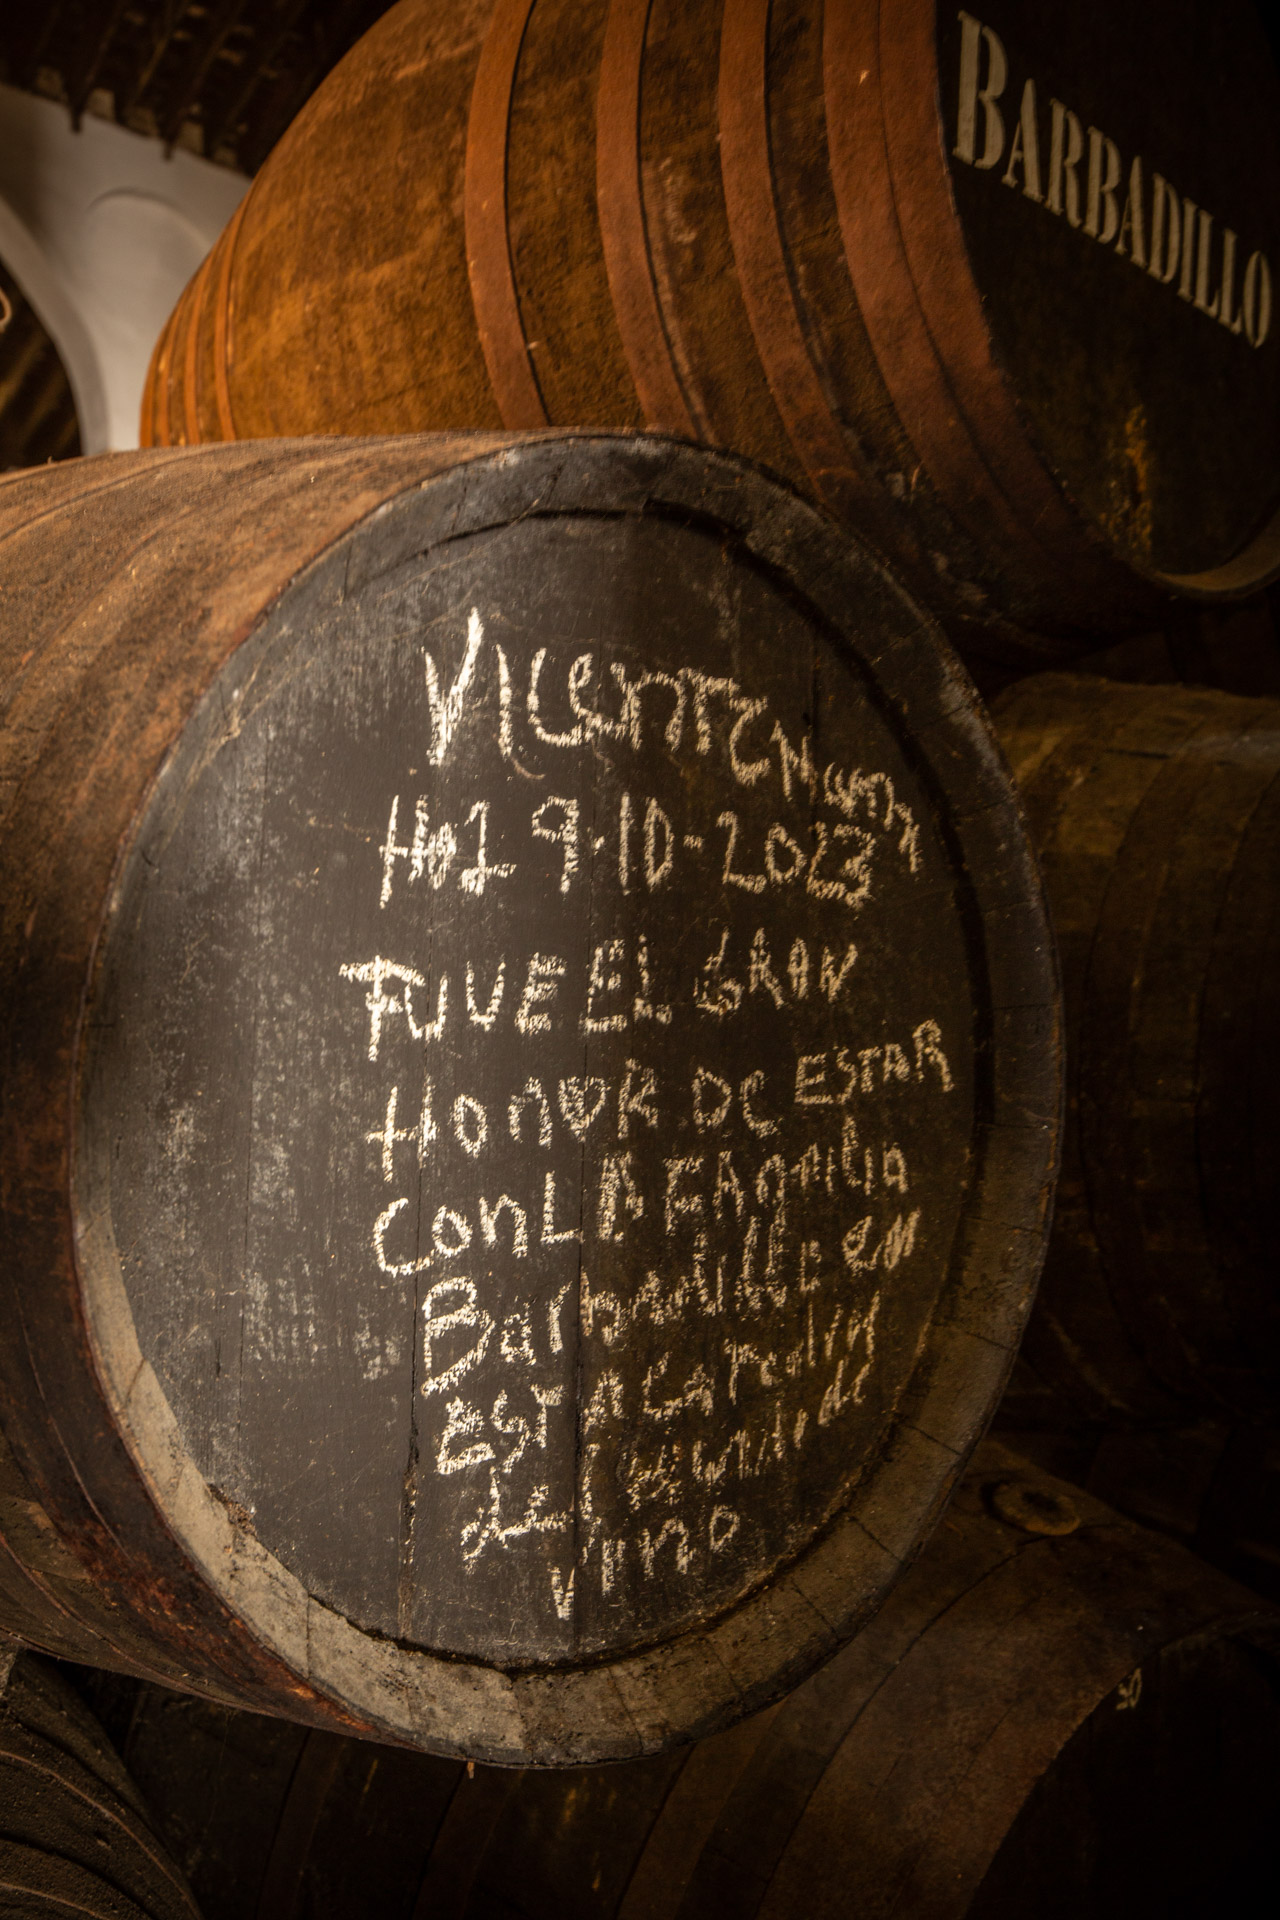 BARBADILLO
Vicente
Hoi 9-10-2023
TUVE EL GRAN
HONOR DE ESTAR
CON LA FAMiliA
Barbadillo en
ESTA CATedral
del de
Vino
50